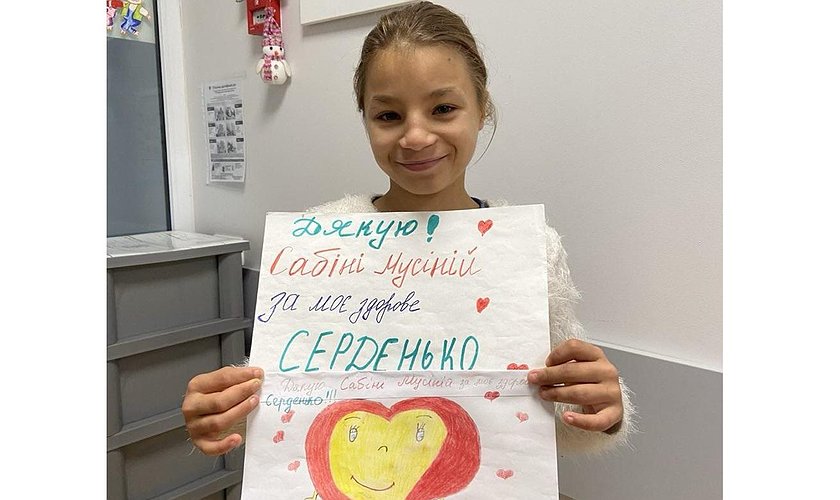 Дякую!
Сабіні Мусіній
за моє здорове
СЕРДЕНЬКО
Дякую, Сабіні Мусіній за моє здорове
Серденько!!!